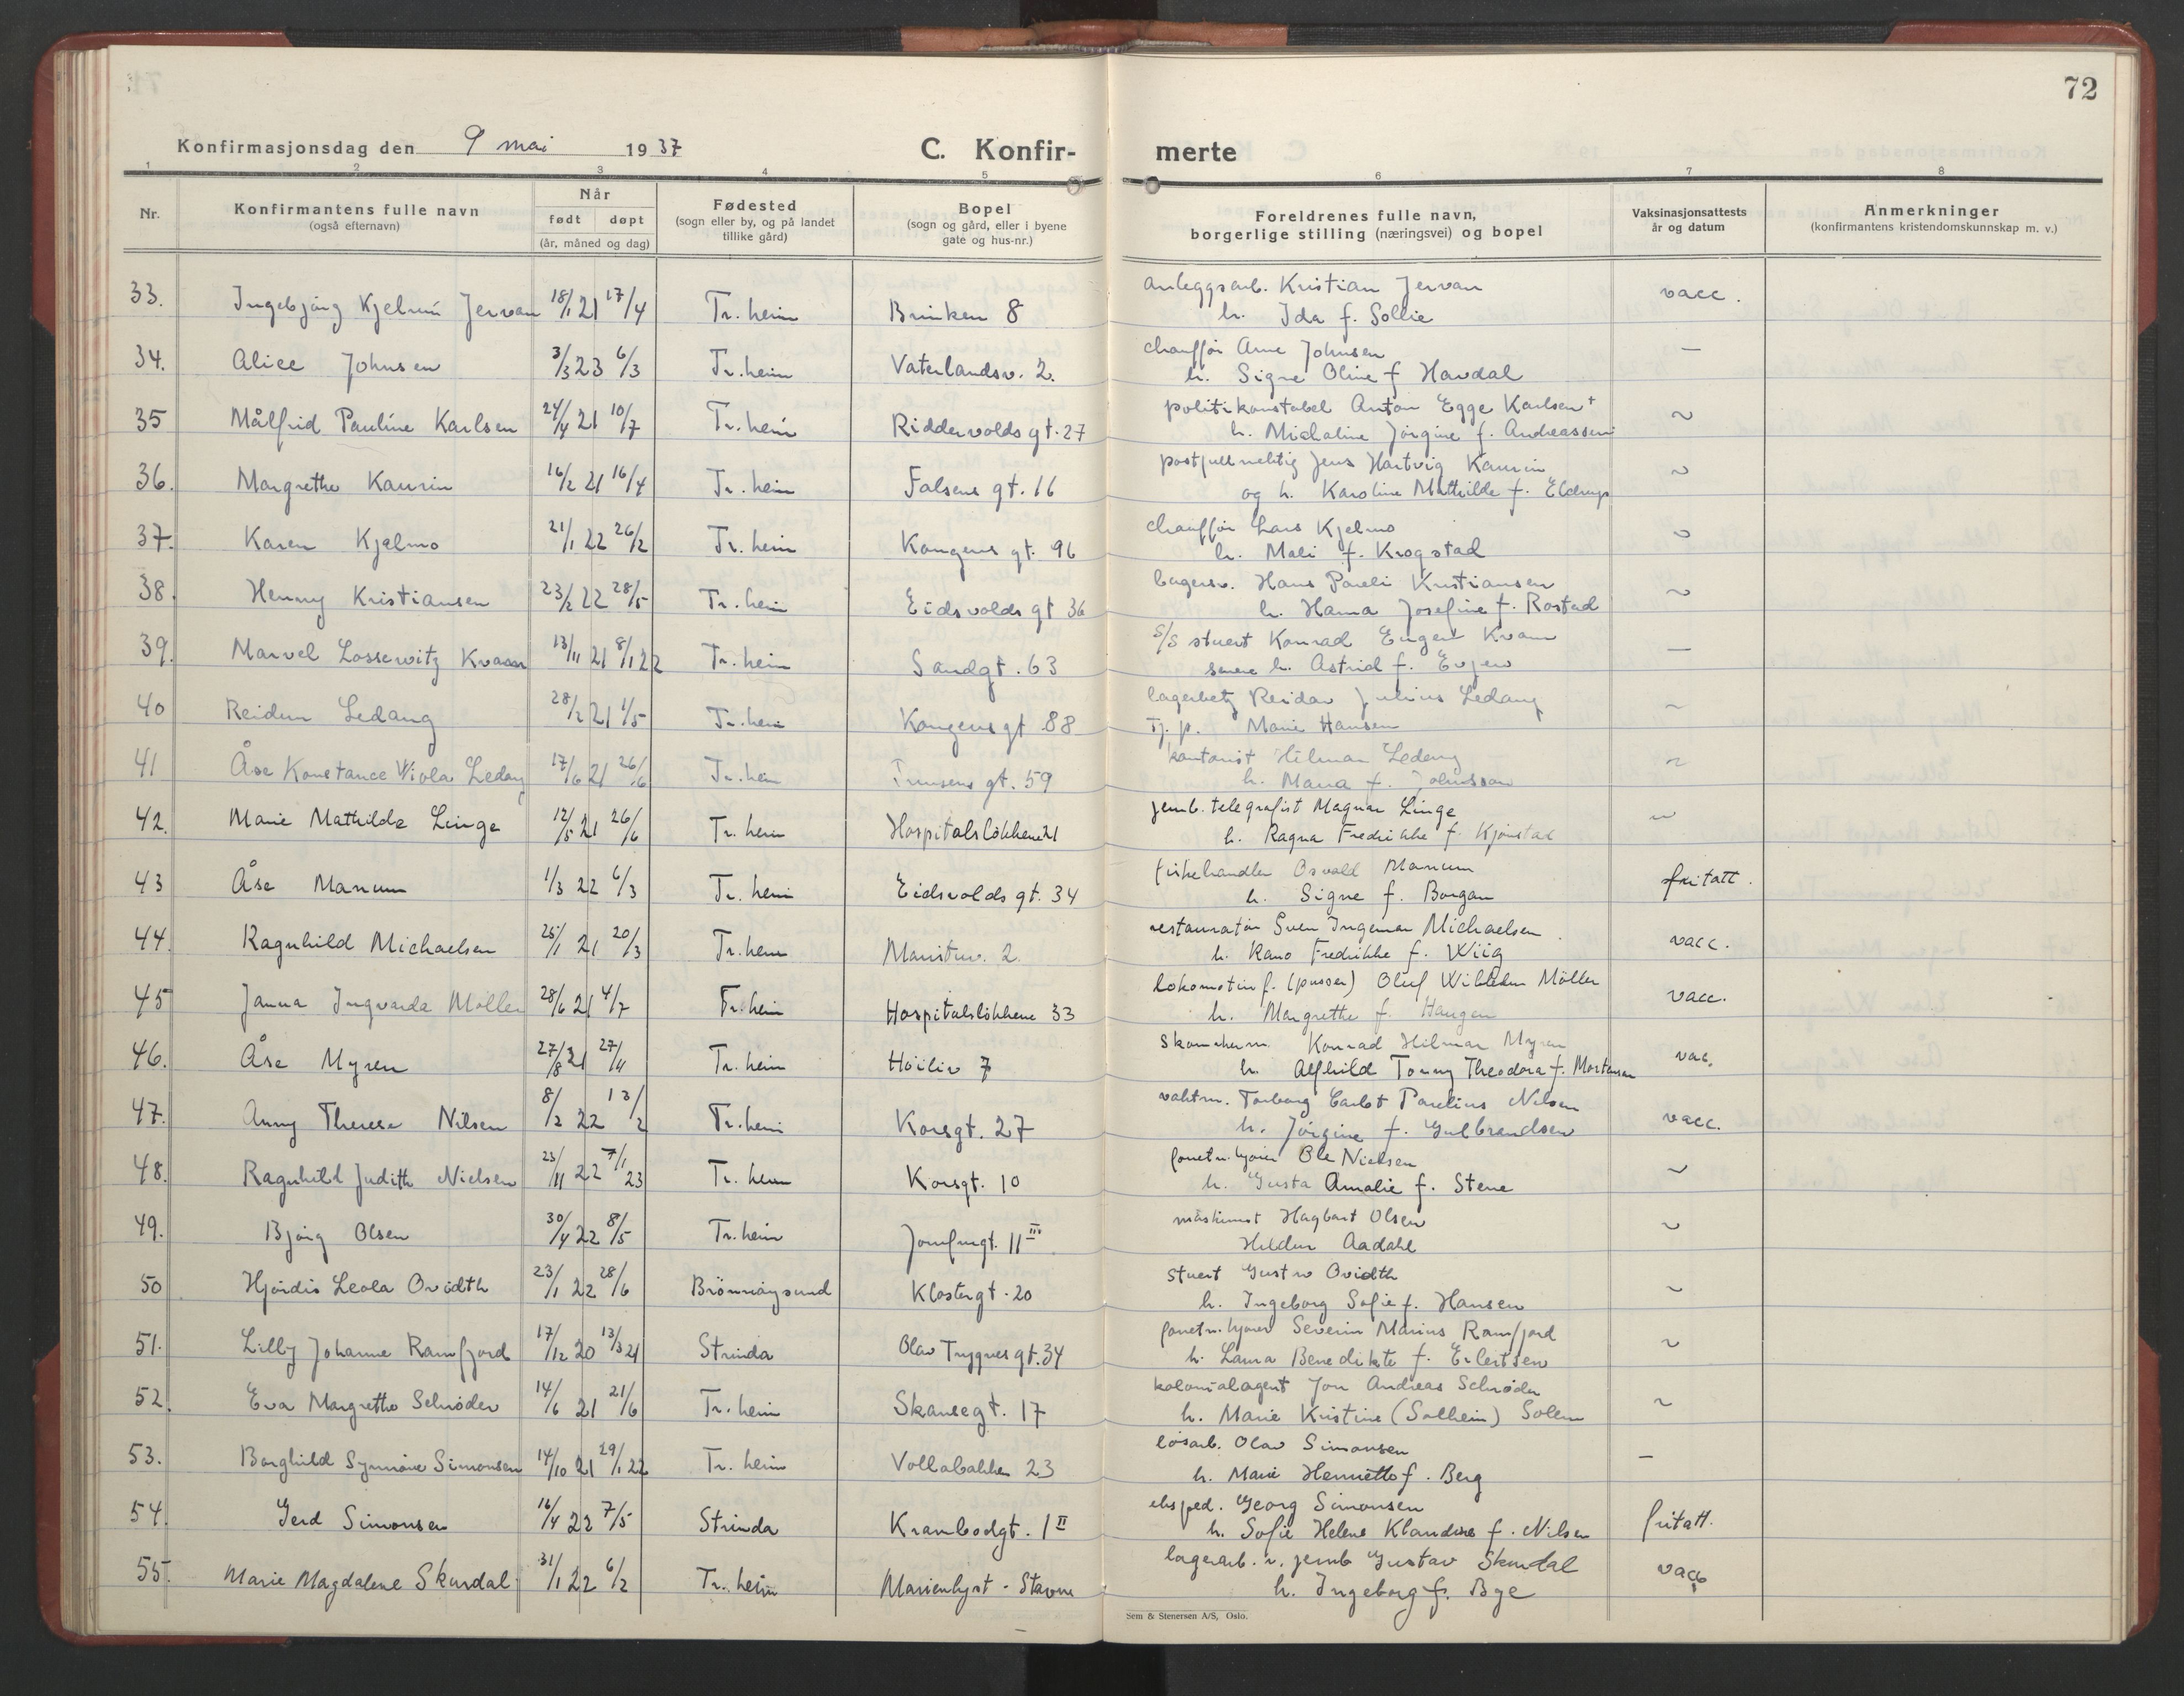 72
Konfirmasjonsdag den 9 mai 1937
C. Konfir- merte
1 2 3 4 5 6 7 8
Nr.
Konfirmantens fulle navn
(også efternavn)
Når
født døpt
(år, måned og dag)
Fødested
(sogn eller by, og på landet
tillike gård)
Bopel
(sogn og gård, eller i byene
gate og hus-nr.)
Foreldrenes fulle navn,
borgerlige stilling (næringsvei) og bopel
Vaksinasjonsattests
år og datum
Anmerkninger
(konfirmantens kristendomskunnskap m. v.)
33. Ingebjörg Jervan 18/1 21 17/4 Tr.heim Brinken 8 anleggsarb. Kristian Jervan vacc.
h. Ida f. Sollie
34. Alice Johnsen 3/3 23 6/3 Tr.heim Vaterlandsv. 2. chauffør Arne Johnsen —
h. Signe Oline f Havdal
35 Målfrid Pauline Karlsen 24/4 21 10/7 Tr.heim Riddervolds gt. 27 politikonstabel Anton Egge Karlsen + ~
h. Michaline Jörgine f. Andreassen
36. Margrethe Kaurin 16/2 21 16/4 Tr.heim Falsens gt. 16 postfullmektig Jens Hartvig Kaurin ~
og h. Karoline Mathilde f. Eldrup
37. Karen Kjelmo 21/1 22 26/2 Tr.heim Kongens gt. 96 chauffør Lars Kjelmo ~
h. Mali f. Krogstad
38. Henny Kristiansen 23/2 22 28/5 Tr.heim Eidsvolds gt 36 Hans Pareli Kristiansen ~
h. Hanna Josefine f. Rostad
39. Marvel Lossewitz Kvaan 13/11 21 8/1 22 Tr.heim Sandgt. 63 S/S stuert Konrad Kvam —
h. Astrid f. Evjen
40 Reidun Ledang 28/2 21 1/5 Tr.heim Kongensgt 88 lagerbetj Reidar Julius Ledang ~
Tj. p. Marie Hansen
41 Åse Konstance Wiola Ledang 17/6 21 26/6 Tr.heim gt. 59 kontorist Hilmar Ledang ~
h. f. Johnsson
42. Marie Mathilde Linge 12/5 21 26/6 Tr.heim Hospitalslökkene 21 jernb. telegrafist Magnar Linge ~
h. Ragna Fredrikke f. Kjønstad
43 Åse Manum 1/3 22 6/3 Tr.heim Eidsvolds gt. 34 fiskehandler Osvald Manum fritatt.
h. Signe f. Borgan
44. Ragnhild Michaelsen 25/1 21 20/3 Tr.heim 2. restauratör Sven Ingemar Michaelsen vacc.
h. Fredrikke f. Wiig
45 Janna Ingvarda Möller 28/6 21 4/7 Tr.heim Hospitalslökkene 33 lokomotivf. (pusser) Oluf Möller vacc.
h. Margrethe f. Haugen
46. Åse Myren 27/8 21 27/11 Tr.heim Höiliv 7 Konrad Hilmar Myren vac.
h. Alfhild Tonny Theodora f. Mortensen
47. Anny Therese Nilsen 8/2 22 13/2 Tr.heim Korsgt. 27 vaktm. Torberg Carlot Paulius Nilsen vacc.
h. Jörgine f. Gulbrandsen
48. Ragnhild Judith Nielsen 23/11 22 7/1 23 Tr.heim Korsgt. 10 Ole Nielsen ~
h. Gusta Amalie f. Stene
49. Bjørg Olsen 30/4 22 8/5 Tr.heim Jomfrugt. 11 III maskinist Hagbart Olsen ~
Hildur Aadahl
50 Hjördis Leola Ovidth 23/1 22 28/6 Brönnöysund Klostergt. 20 stuert Gustav Ovidth ~
h. Ingeborg Sofie f. Hansen
51. Lilly Johanne Ramfjord 17/12 20 13/3 21 Strinda Olav Trygves gt. 34 Severin Marius Ramfjord ~
h. Laura Benedikte f. Erlertsen
52. Eva Margrethe Schrøder 14/6 21 21/6 Tr.heim Skansegt. 17 kolonialagent Jon Andreas Schrøder ~
h. Marie Kristine (Solheim) Solem
53. Borghild Synnöve Simonsen 14/10 21 29/1 22 Tr.heim Vollabakken 23 lösarb. Olav Simonsen —
h. Marie Henriette f. Berg
54. Gerd Simonsen 16/4 22 7/5 Strinda Krambodgt. 1 II eksped. Georg Simonsen fritatt.
h. Sofie Helene Klaudine f. Nilsen
55. Marie Magdalene Skurdal 31/1 22 6/2 Tr.heim Marienlyst - Stavne lagerarb. v. jernb Gustav Skurdal vacc
h. Ingeborg f. Bye
Sem & Stenersen A/S, Oslo.